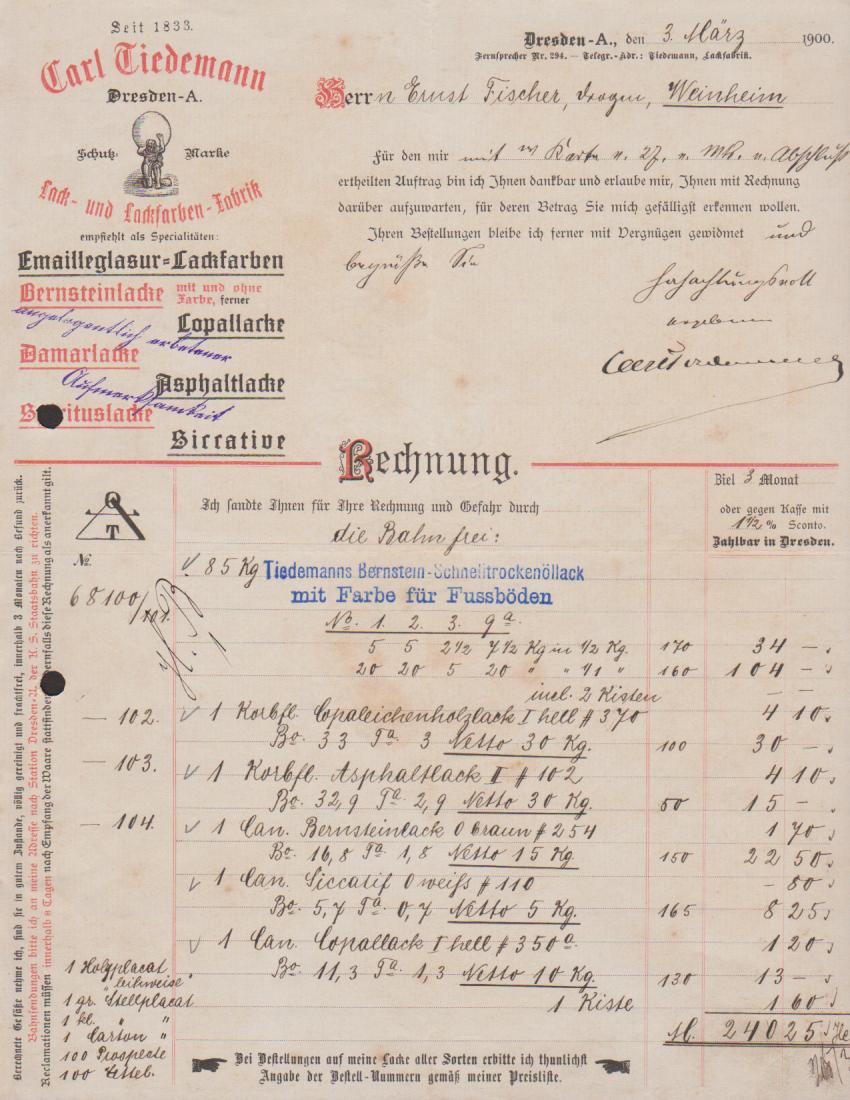 Seit 1833.
Carl Tiedemann
Dresden-A.
Schutz- Marke
Lack- und Lackfarben-Fabrik
empfiehlt als Specialitäten:
Emailleglasur-Lackfarben
Bernsteinlacke mit und ohne Farbe, ferner
Copallacke
angelegentlich erbetener
Damarlacke
Asphaltlacke
Aufmerksamkeit
Spirituslacke
Siccative
Dresden-A., den 3. März 1900.
Fernsprecher Nr. 294. — Telegr.-Adr.: Tiedemann, Lackfabrik.
Herrn Ernst Fischer, Drogen, Weinheim
Für den mir mit Karte v. 27. v. Mts. u. Abschluß
ertheilten Auftrag bin ich Ihnen dankbar und erlaube mir, Ihnen mit Rechnung
darüber aufzuwarten, für deren Betrag Sie mich gefälligst erkennen wollen.
Ihren Bestellungen bleibe ich ferner mit Vergnügen gewidmet und
begrüße Sie
hochachtungsvoll
ergebenst
Carl Tiedemann
Rechnung.
Ziel 3 Monat
oder gegen Kasse mit
1 1/2 % Sconto.
Zahlbar in Dresden.
Ich sandte Ihnen für Ihre Rechnung und Gefahr durch
die Bahn frei:
C T
No.
68100/101.
85 Kg Tiedemanns Bernstein-Schnelltrockenöllack
mit Farbe für Fussböden
No. 1. 2. 3. 9a.
5 5 2 1/2 7 1/2 Kg in 1/2 Kg. 170 34 –
20 20 5 20 " " 1/1 " 160 104 –
incl. 2 Kisten – –
– 102. 1 Korbfl. Copaleichenholzlack I hell # 370 4 10
Bo. 33 Ta. 3 Netto 30 Kg. 100 30 –
– 103. 1 Korbfl. Asphaltlack II # 102 4 10
Bo. 32,9 Ta. 2,9 Netto 30 Kg. 50 15 –
– 104. 1 Can. Bernsteinlack 0 braun # 254 1 70
Bo. 16,8 Ta. 1,8 Netto 15 Kg. 150 22 50
1 Can. Siccatif 0 weiß # 110 – 80
Bo. 5,7 Ta. 0,7 Netto 5 Kg. 165 8 25
1 Can. Copallack I hell # 350a. 1 20
Bo. 11,3 Ta. 1,3 Netto 10 Kg. 130 13 –
1 Kiste 1 60
M. 240 25
1 Holzplacat
"leihweise"
1 gr. Stellplacat
1 kl. " "
1 Carton "
100 Prospecte
100 Zettel.
Bei Bestellungen auf meine Lacke aller Sorten erbitte ich thunlichst
Angabe der Bestell-Nummern gemäß meiner Preisliste.
Berechnete Gefäße nehme ich, sind sie in gutem Zustande, völlig gereinigt und frachtfrei, innerhalb 3 Monaten nach Befund zurück.
Bahnsendungen bitte ich an meine Adresse nach Station Dresden-A. der K. S. Staatsbahn zu richten.
Reclamationen müssen innerhalb 8 Tagen nach Empfang der Waare stattfinden, andernfalls diese Rechnung als anerkannt gilt.